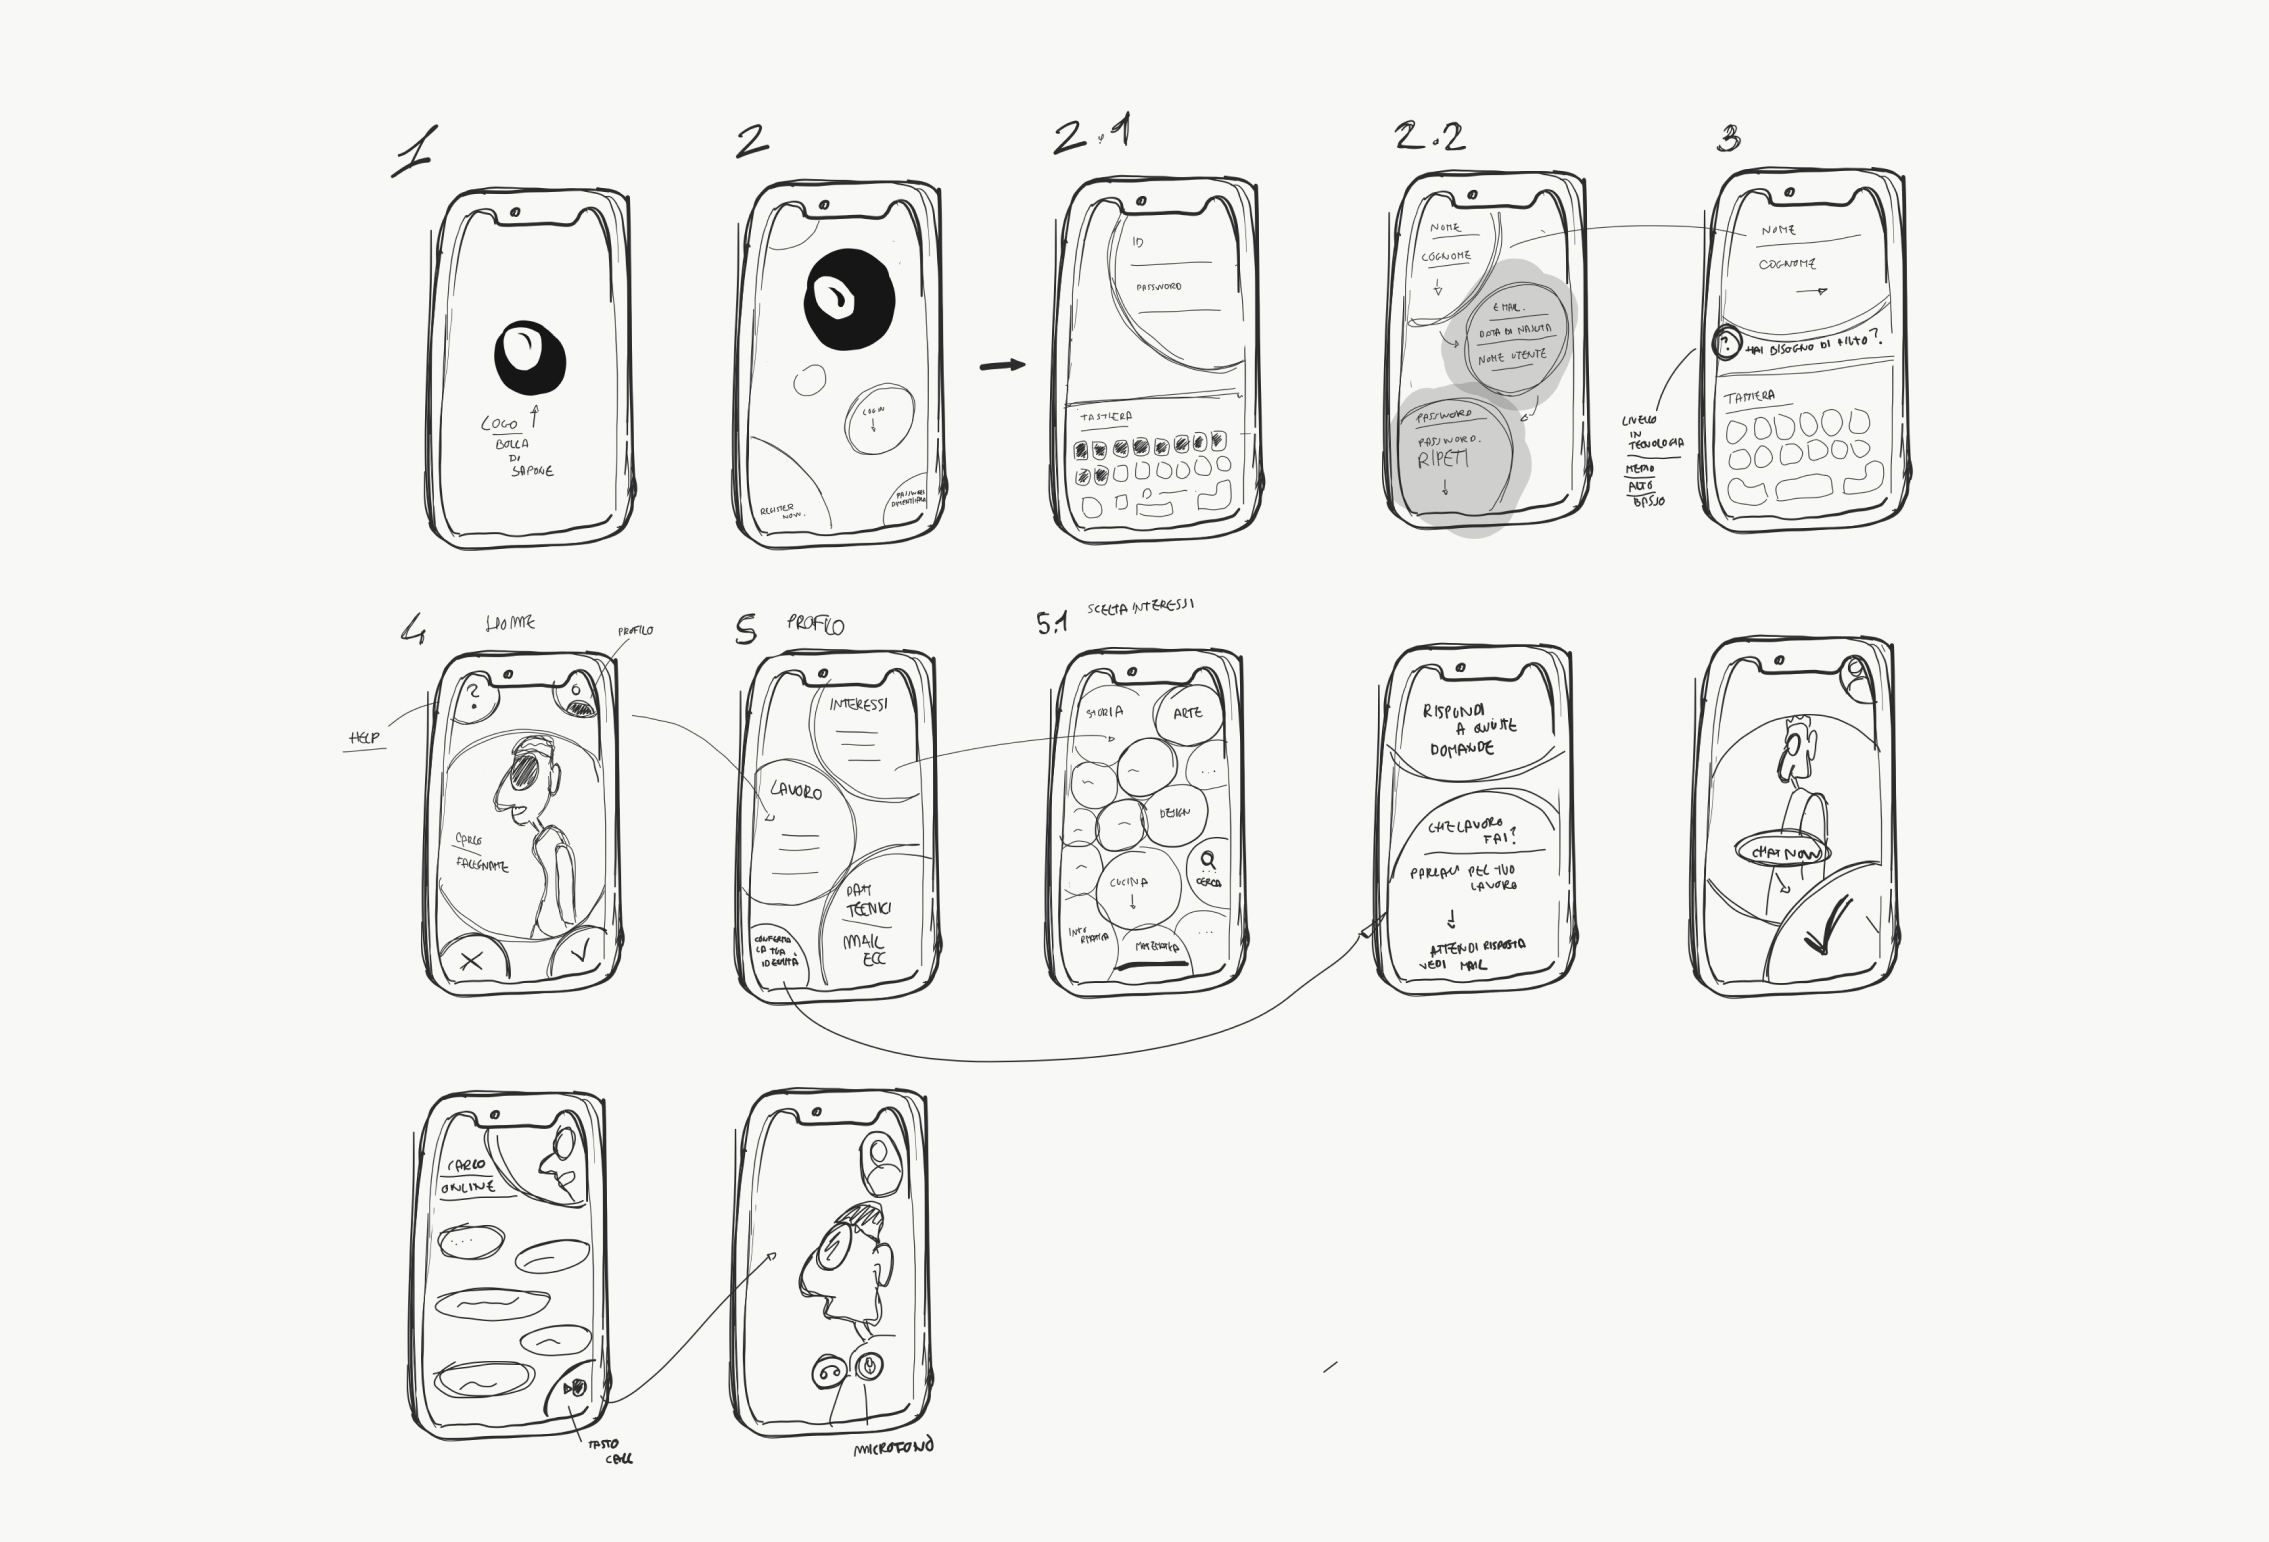 1
2
2.1
2.2
3
LOGO
BOLLA
DI
SAPONE
LOGIN
REGISTER
NOW.
PASSWORD
DIMENTICATA
ID
PASSWORD
TASTIERA
NOME
COGNOME
EMAIL.
DATA DI NASCITA
NOME UTENTE
PASSWORD
PASSWORD.
RIPETI
NOME
COGNOME
?
HAI BISOGNO DI AIUTO?
TASTIERA
LIVELLO
IN
TECNOLOGIA
MEDIO
ALTO
BASSO
4 HOME
PROFILO
HELP
?
CARLO
FALEGNAME
5 PROFILO
INTERESSI
LAVORO
DATI
TECNICI
MAIL
ECC
CONFERMA
LA TUA
IDENTITÀ
5.1 SCELTA INTERESSI
STORIA
ARTE
...
DESIGN
CUCINA
CERCA
INFO
RMATICA
MATEMATICA
...
RISPONDI
A QUESTE
DOMANDE
CHE LAVORO
FAI?
PARLACI DEL TUO
LAVORO
ATTENDI RISPOSTA
VEDI MAIL
CHAT NOW
CARLO
ONLINE
....
TASTO
CALL
MICROFONO